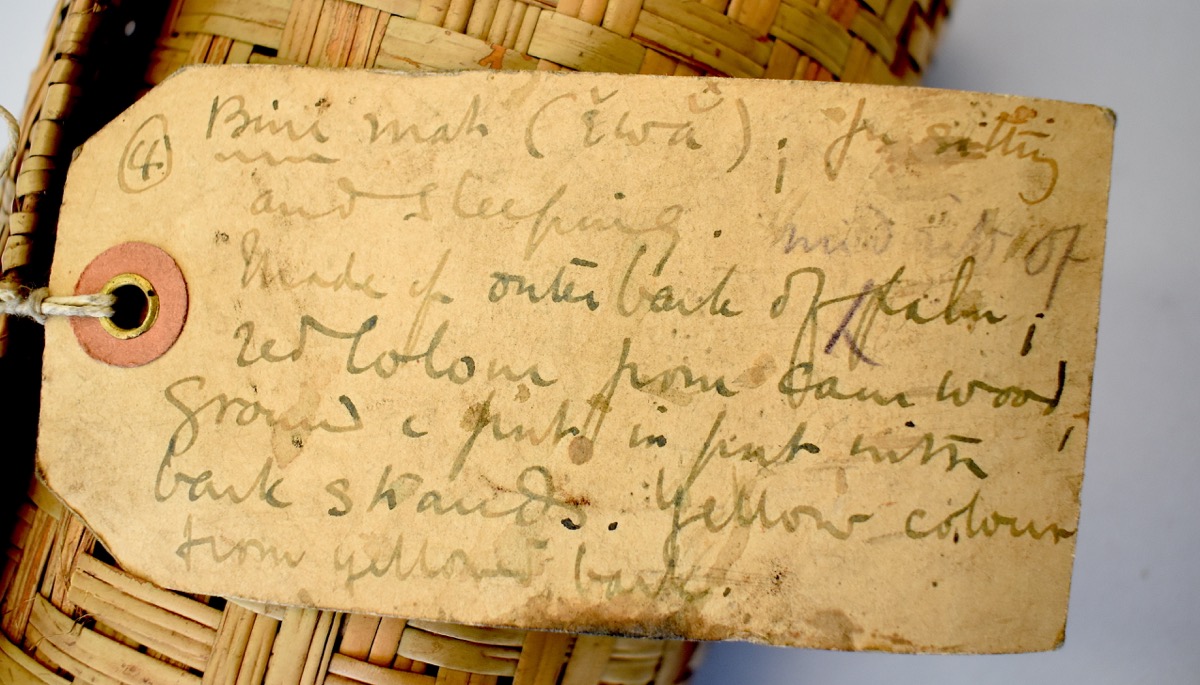 ④ Bini mat (ĕwă); for sitting
and sleeping. mid ribs of
Made of outer bark of palm;
red colour from cam wood,
ground & put in pot with
bark strands. Yellow colour
from yellowed bark.